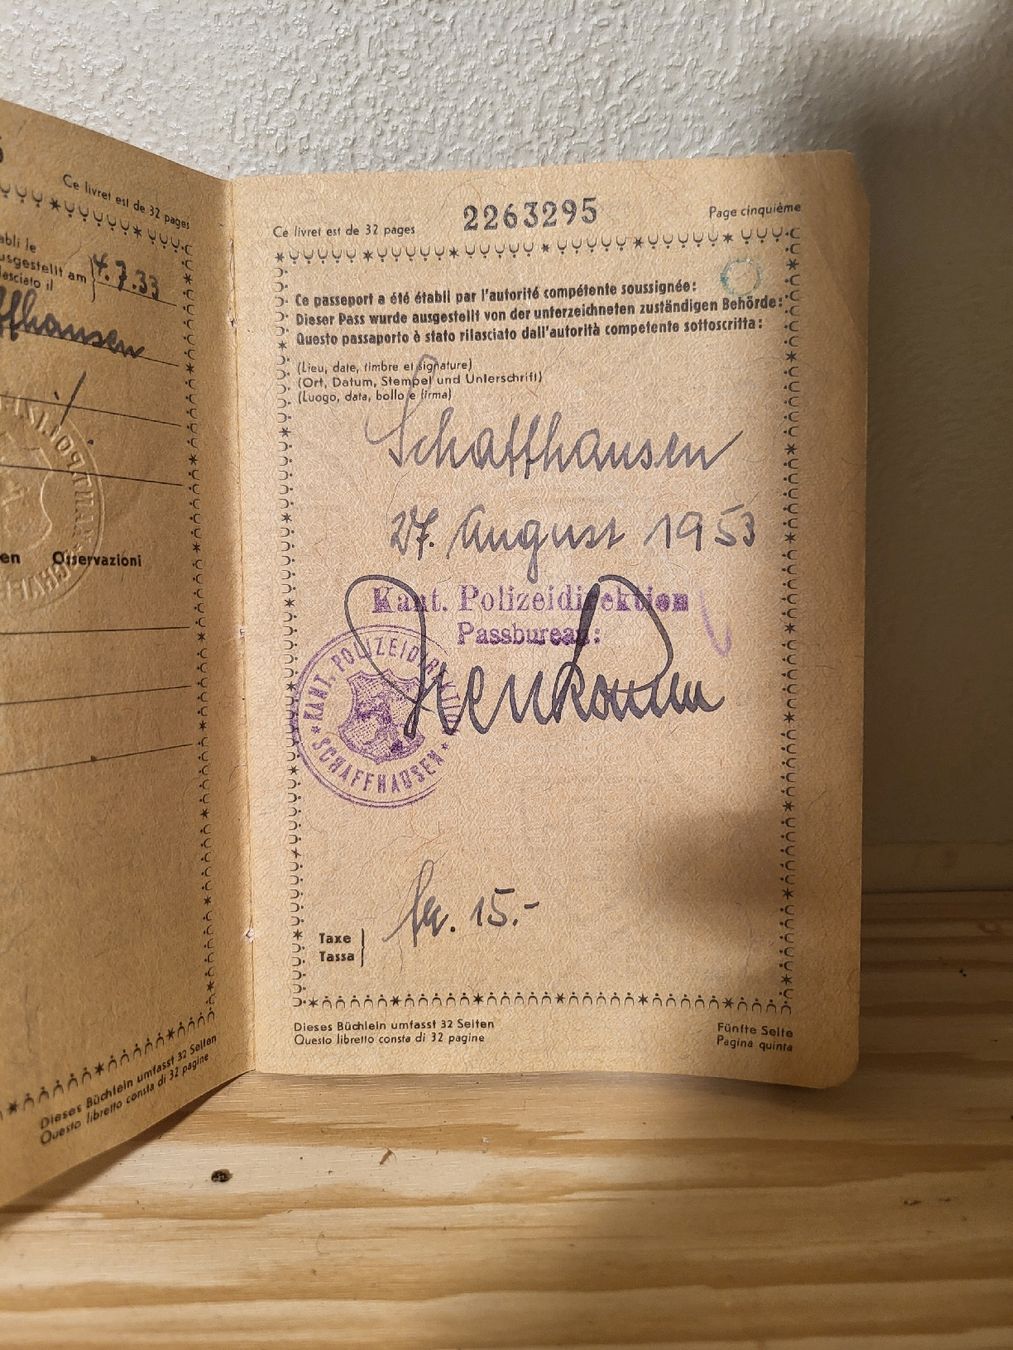 Ce livret est de 32 pages
abli le
usgestellt am
lasciato il
4.7.33
ffhausen
en Osservazioni
Dieses Büchlein umfasst 32 Seiten
Questo libretto consta di 32 pagine
Ce livret est de 32 pages 2263295 Page cinquième
Ce passeport a été établi par l'autorité compétente soussignée:
Dieser Pass wurde ausgestellt von der unterzeichneten zuständigen Behörde:
Questo passaporto è stato rilasciato dall'autorità competente sottoscritta:
(Lieu, date, timbre et signature)
(Ort, Datum, Stempel und Unterschrift)
(Luogo, data, bollo e firma)
Schaffhausen
27. August 1953
Kant. Polizeidirektion
Passbureau:
KANT. POLIZEIDIREKTION
* SCHAFFHAUSEN *
Taxe
Tassa
fr. 15.-
Dieses Büchlein umfasst 32 Seiten
Questo libretto consta di 32 pagine
Fünfte Seite
Pagina quinta